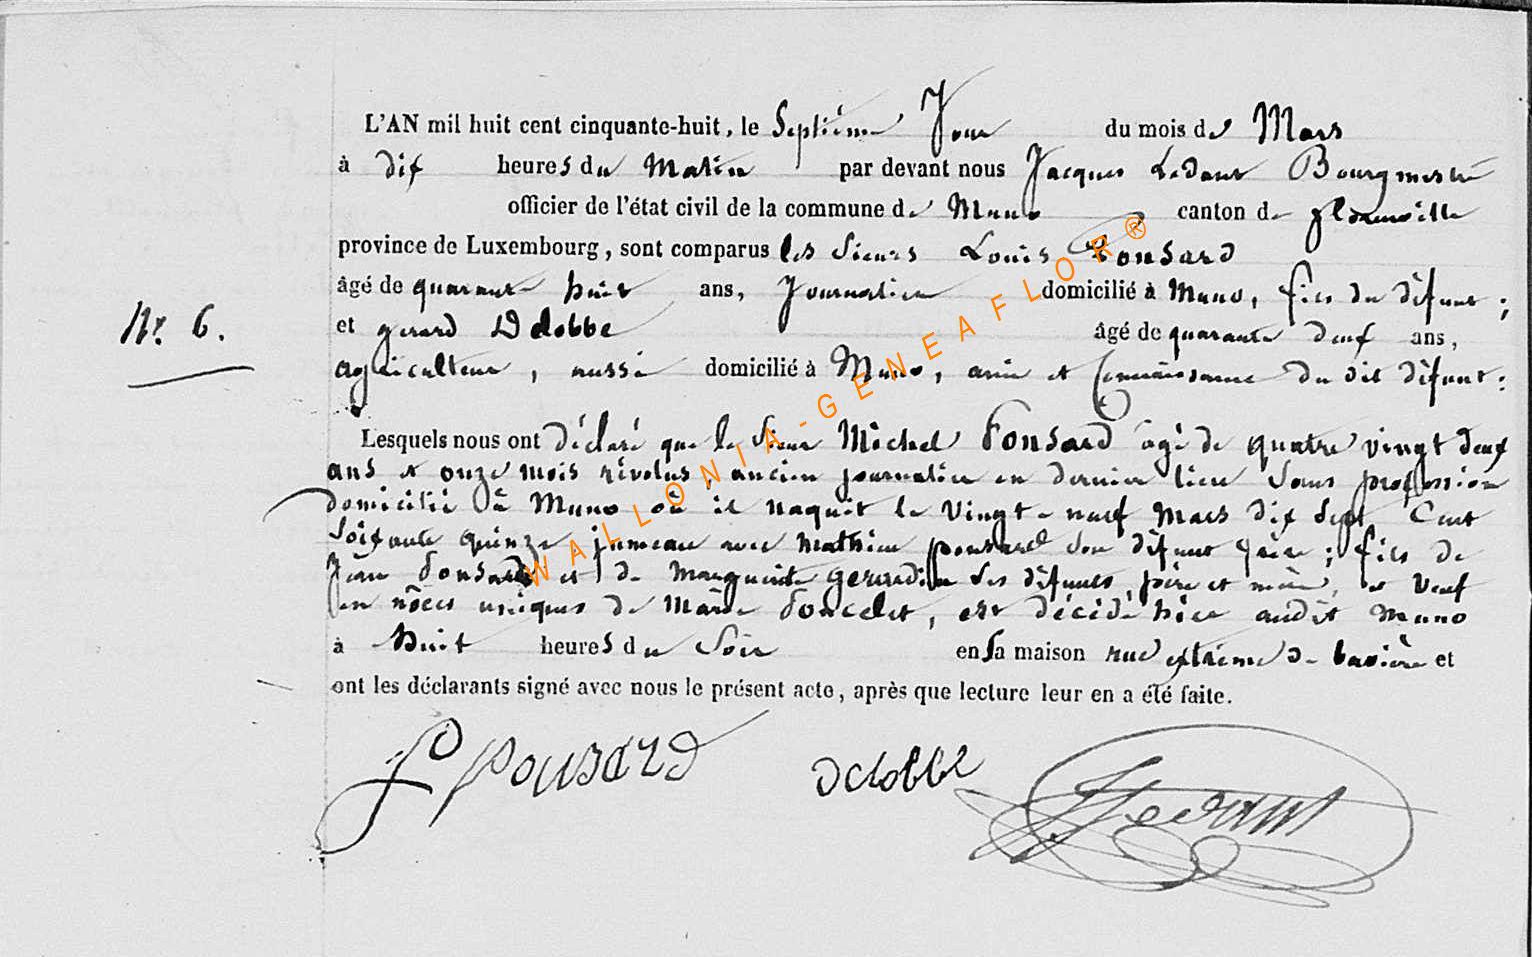 L'AN mil huit cent cinquante-huit, le Septième Jour du mois de Mars
à dix heures du Matin par devant nous Jacques Ledant Bourgmestre
officier de l'état civil de la commune de Muno canton de florenville
province de Luxembourg, sont comparus les Sieurs Louis Ponsard
âgé de quarante huit ans, Journalier domicilié à Muno, fils du défunt ;
et gerard Delobbe âgé de quarante deux ans,
Nr. 6.
agriculteur, aussi domicilié à Muno, ami et Connaissance du dit défunt :
Lesquels nous ont déclaré que le Sieur Michel Ponsard âgé de quatre vingt deux
ans et onze mois révolus, ancien journalier en dernier lieu sans profession
domicilié à Muno où il naquit le vingt-neuf Mars dix sept Cent
soixante quinze, jumeau avec Mathieu ponsard son défunt frère ; fils de
Jean Ponsard et de Marguerite gerardin ses défunts père et mère, et Veuf
en nôces uniques de Marie Poncelet, est décédé hier audit Muno
à Huit heures du Soir en sa maison rue extrême de bavière et
ont les déclarants signé avec nous le présent acte, après que lecture leur en a été faite.
Ponsard Delobbe JLedant
WALLONIA-GENEAFLOR®